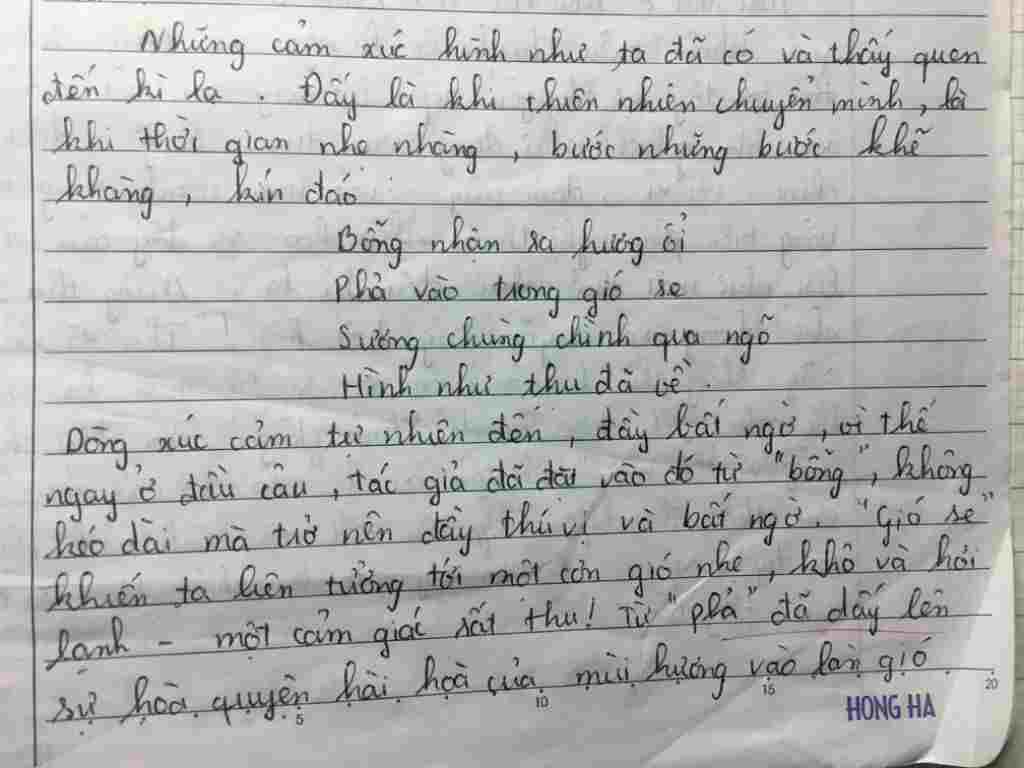 Những cảm xúc hình như ta đã có và thấy quen
đến kì lạ. Đấy là khi thiên nhiên chuyển mình, là
khi thời gian nhẹ nhàng, bước những bước khẽ
khàng, kín đáo
Bỗng nhận ra hương ổi
Phả vào trong gió se
Sương chùng chình qua ngõ
Hình như thu đã về.
Dòng xúc cảm tự nhiên đến, đầy bất ngờ, vì thế
ngay ở đầu câu, tác giả đã đặt vào đó từ "bỗng", không
kéo dài mà trở nên đầy thú vị và bất ngờ. "Gió se"
khiến ta liên tưởng tới một cơn gió nhẹ, khô và hơi
lạnh - một cảm giác rất thu! Từ "phả" đã dấy lên
sự hòa quyện hài hòa của mùi hương vào làn gió
5 10 15 20
HONG HA